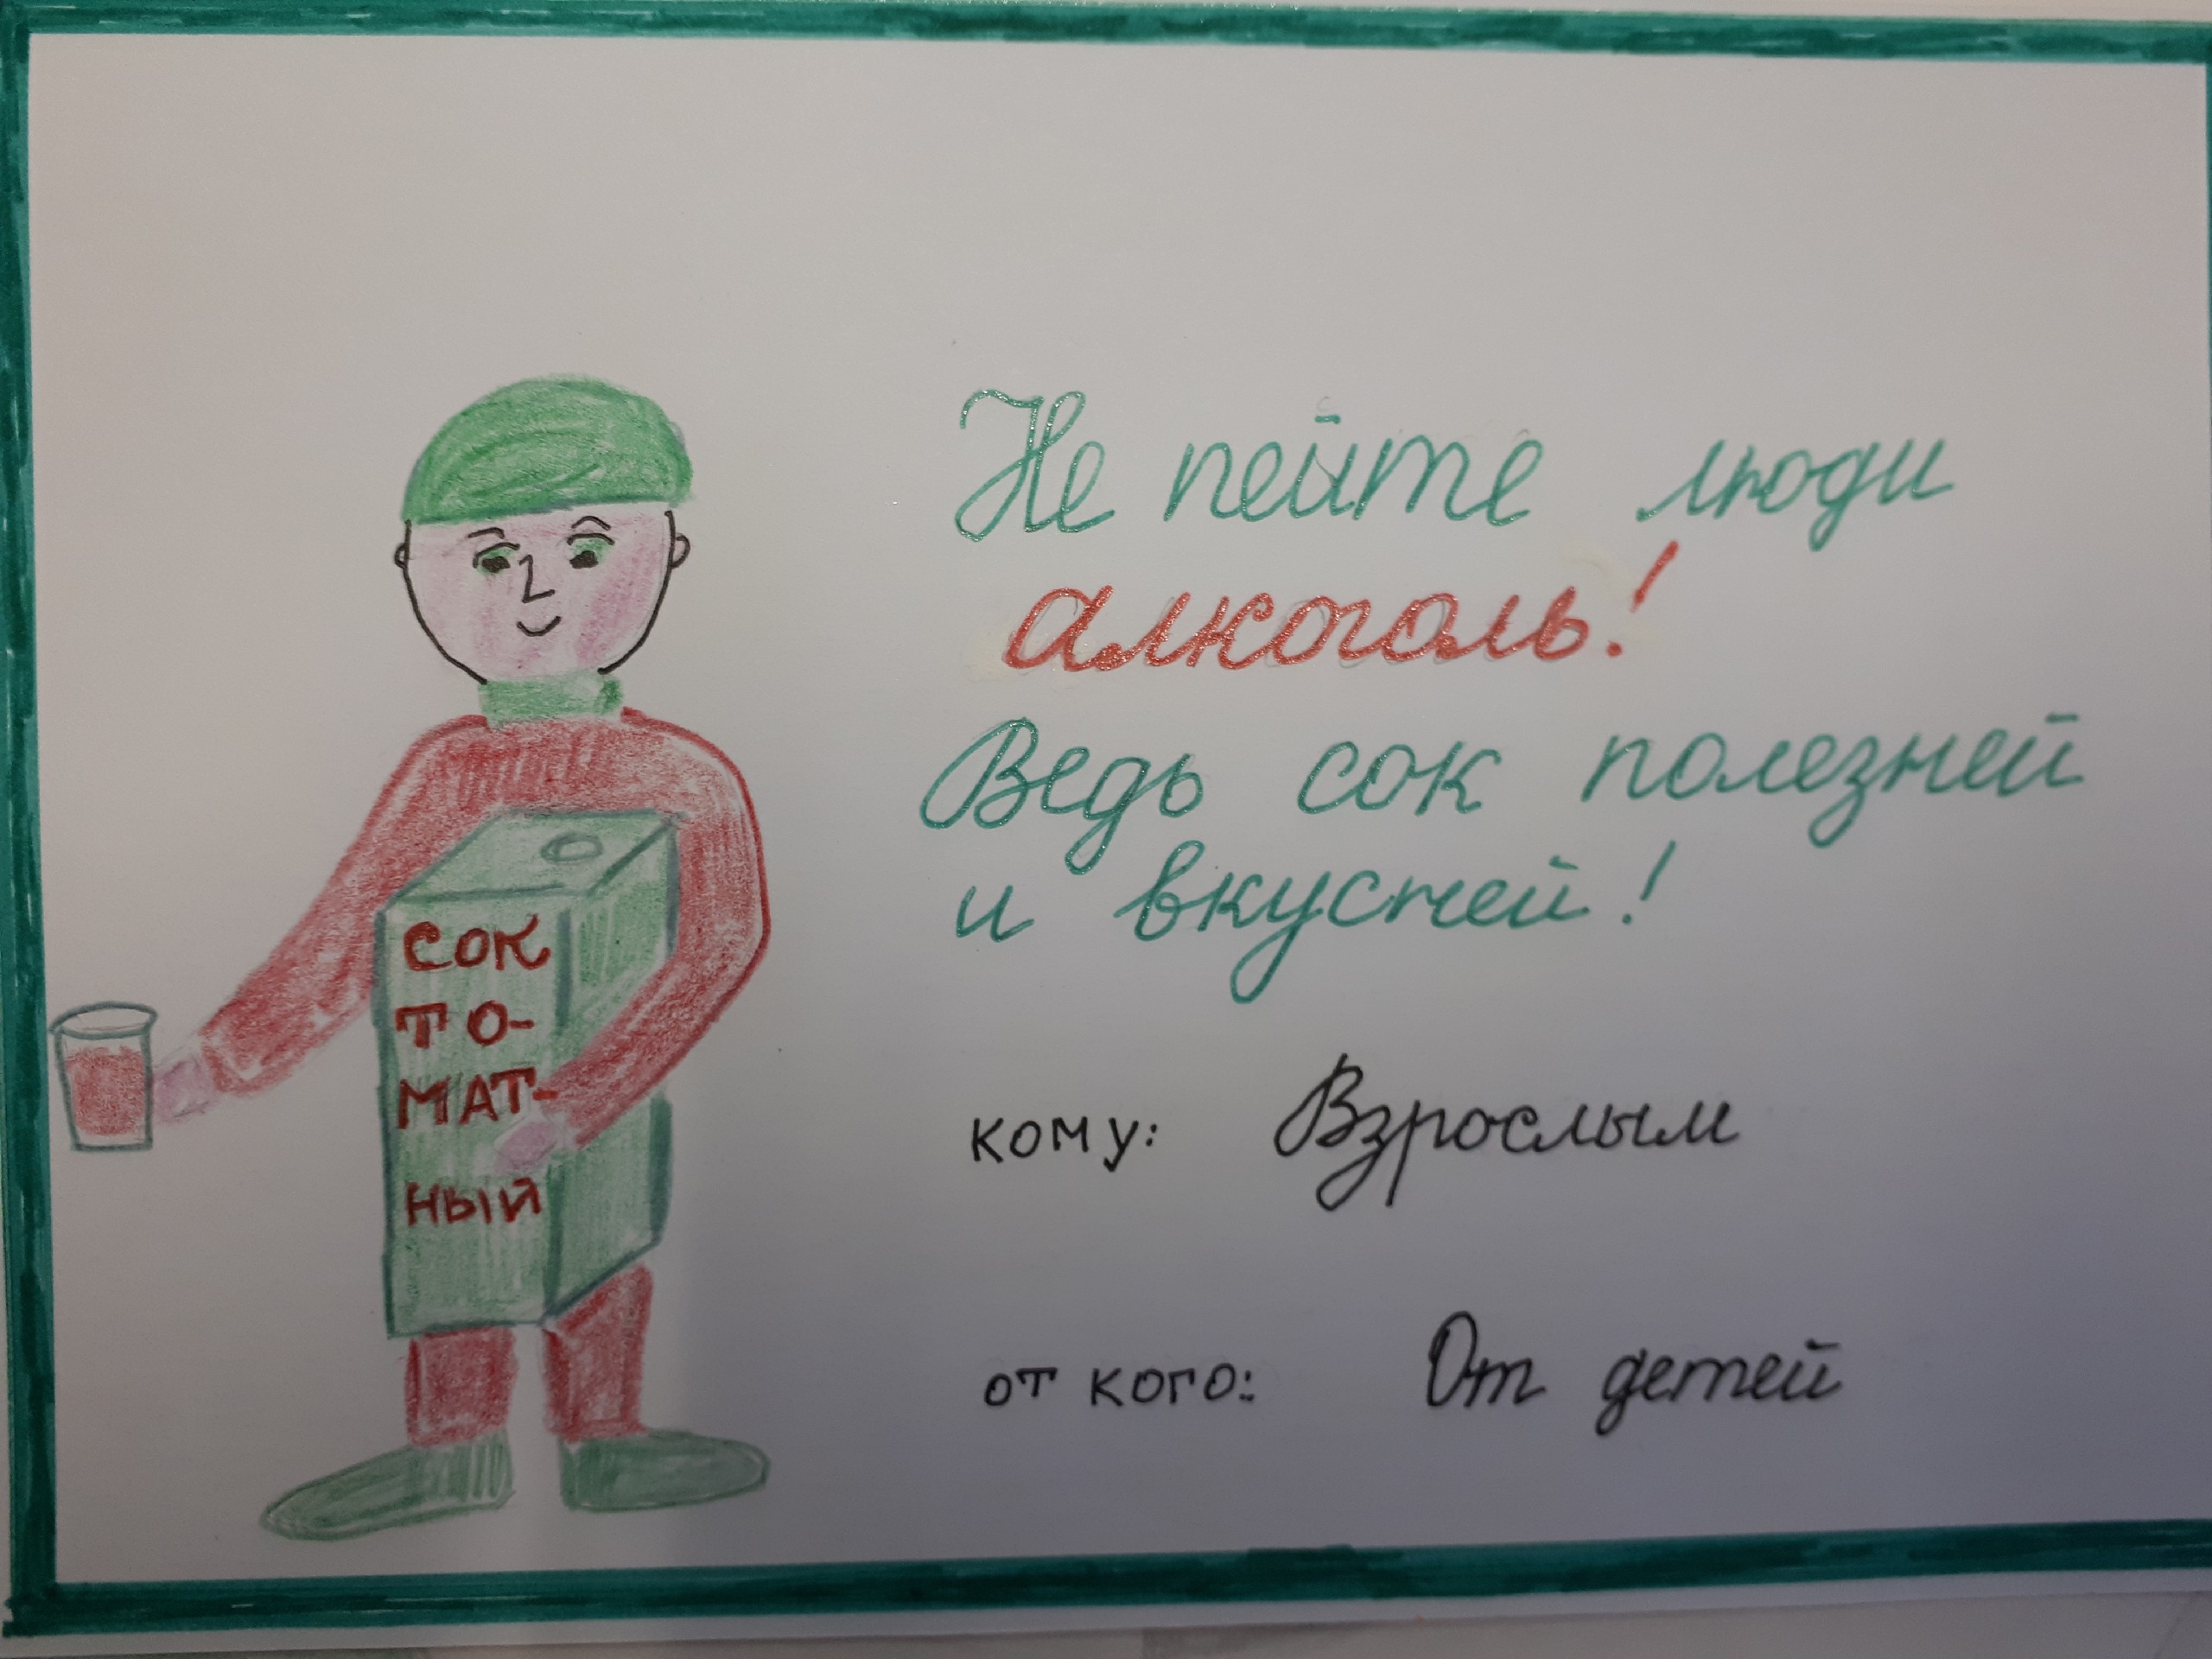 Не пейте люди
алкоголь!
Ведь сок полезней
и вкусней!
СОК
ТО-
МАТ-
НЫЙ
кому: Взрослым
от кого: От детей